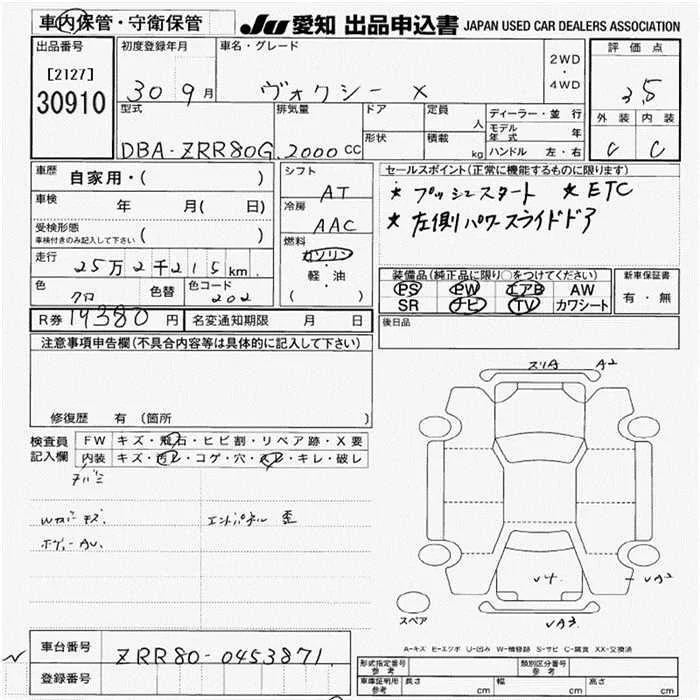 車内保管・守衛保管 JU 愛知 出品申込書 JAPAN USED CAR DEALERS ASSOCIATION
出品番号
[2127]
30910
初度登録年月
30 9月
車名・グレード
ヴォクシー X
2WD
・
4WD
評価点
3.5
外装 内装
C C
型式
DBA-ZRR80G
排気量
2000 CC
ドア
形状
定員
人
積載
kg
ディーラー・並行
モデル年式 年
ハンドル 左・右
車歴
自家用・( )
車検
年 月( 日)
受検形態
車検付きのみ記入して下さい ( )
走行
25万2千215km
色
クロ
色替
色コード
202
シフト
AT
冷房
AAC
燃料
ガソリン
軽・油
( )
セールスポイント(正常に機能するものに限ります)
★ プッシュスタート ★ ETC
★ 左側パワースライドドア
装備品(純正品に限り○をつけてください)
PS PW エアB AW
SR ナビ TV カワシート
新車保証書
有・無
R券 19380円
名変通知期限 月 日
後日品
注意事項申告欄(不具合内容等は具体的に記入して下さい)
修復歴 有 (箇所 )
検査員記入欄
FW キズ・飛石・ヒビ割・リペア跡・X要
内装 キズ・汚レ・コゲ・穴・スレ・キレ・破レ
エンドパネル 歪
スリA A2
V4
VA2
VA3
スペア
A-キズ E-エクボ U-凹み W-補修跡 S-サビ C-腐食 XX-交換済
車台番号
ZRR80-0453871
登録番号
形式指定番号
参考
類別区分番号
参考
車庫証明用
参考
長さ cm 幅 cm 高さ cm